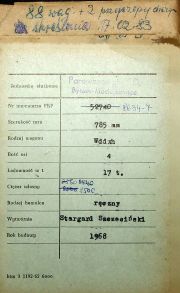 88 wag + 2
skreślono 17.02.83
Jednostka służbowa
Nr inwentarza PKP 52740 8634-7
Szerokość toru 785 mm
Rodzaj wagonu Wddxh
Ilość osi 4
Ładowność w t 17 t.
Ciężar własny
Rodzaj hamulca ręczny
Wytwórnia Stargard Szczeciński
Rok budowy 1968